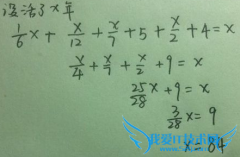 设活了x年
1/6 x + x/12 + x/7 + 5 + x/2 + 4 = x
x/4 + x/7 + x/2 + 9 = x
25/28 x + 9 = x
3/28 x = 9
x = 84